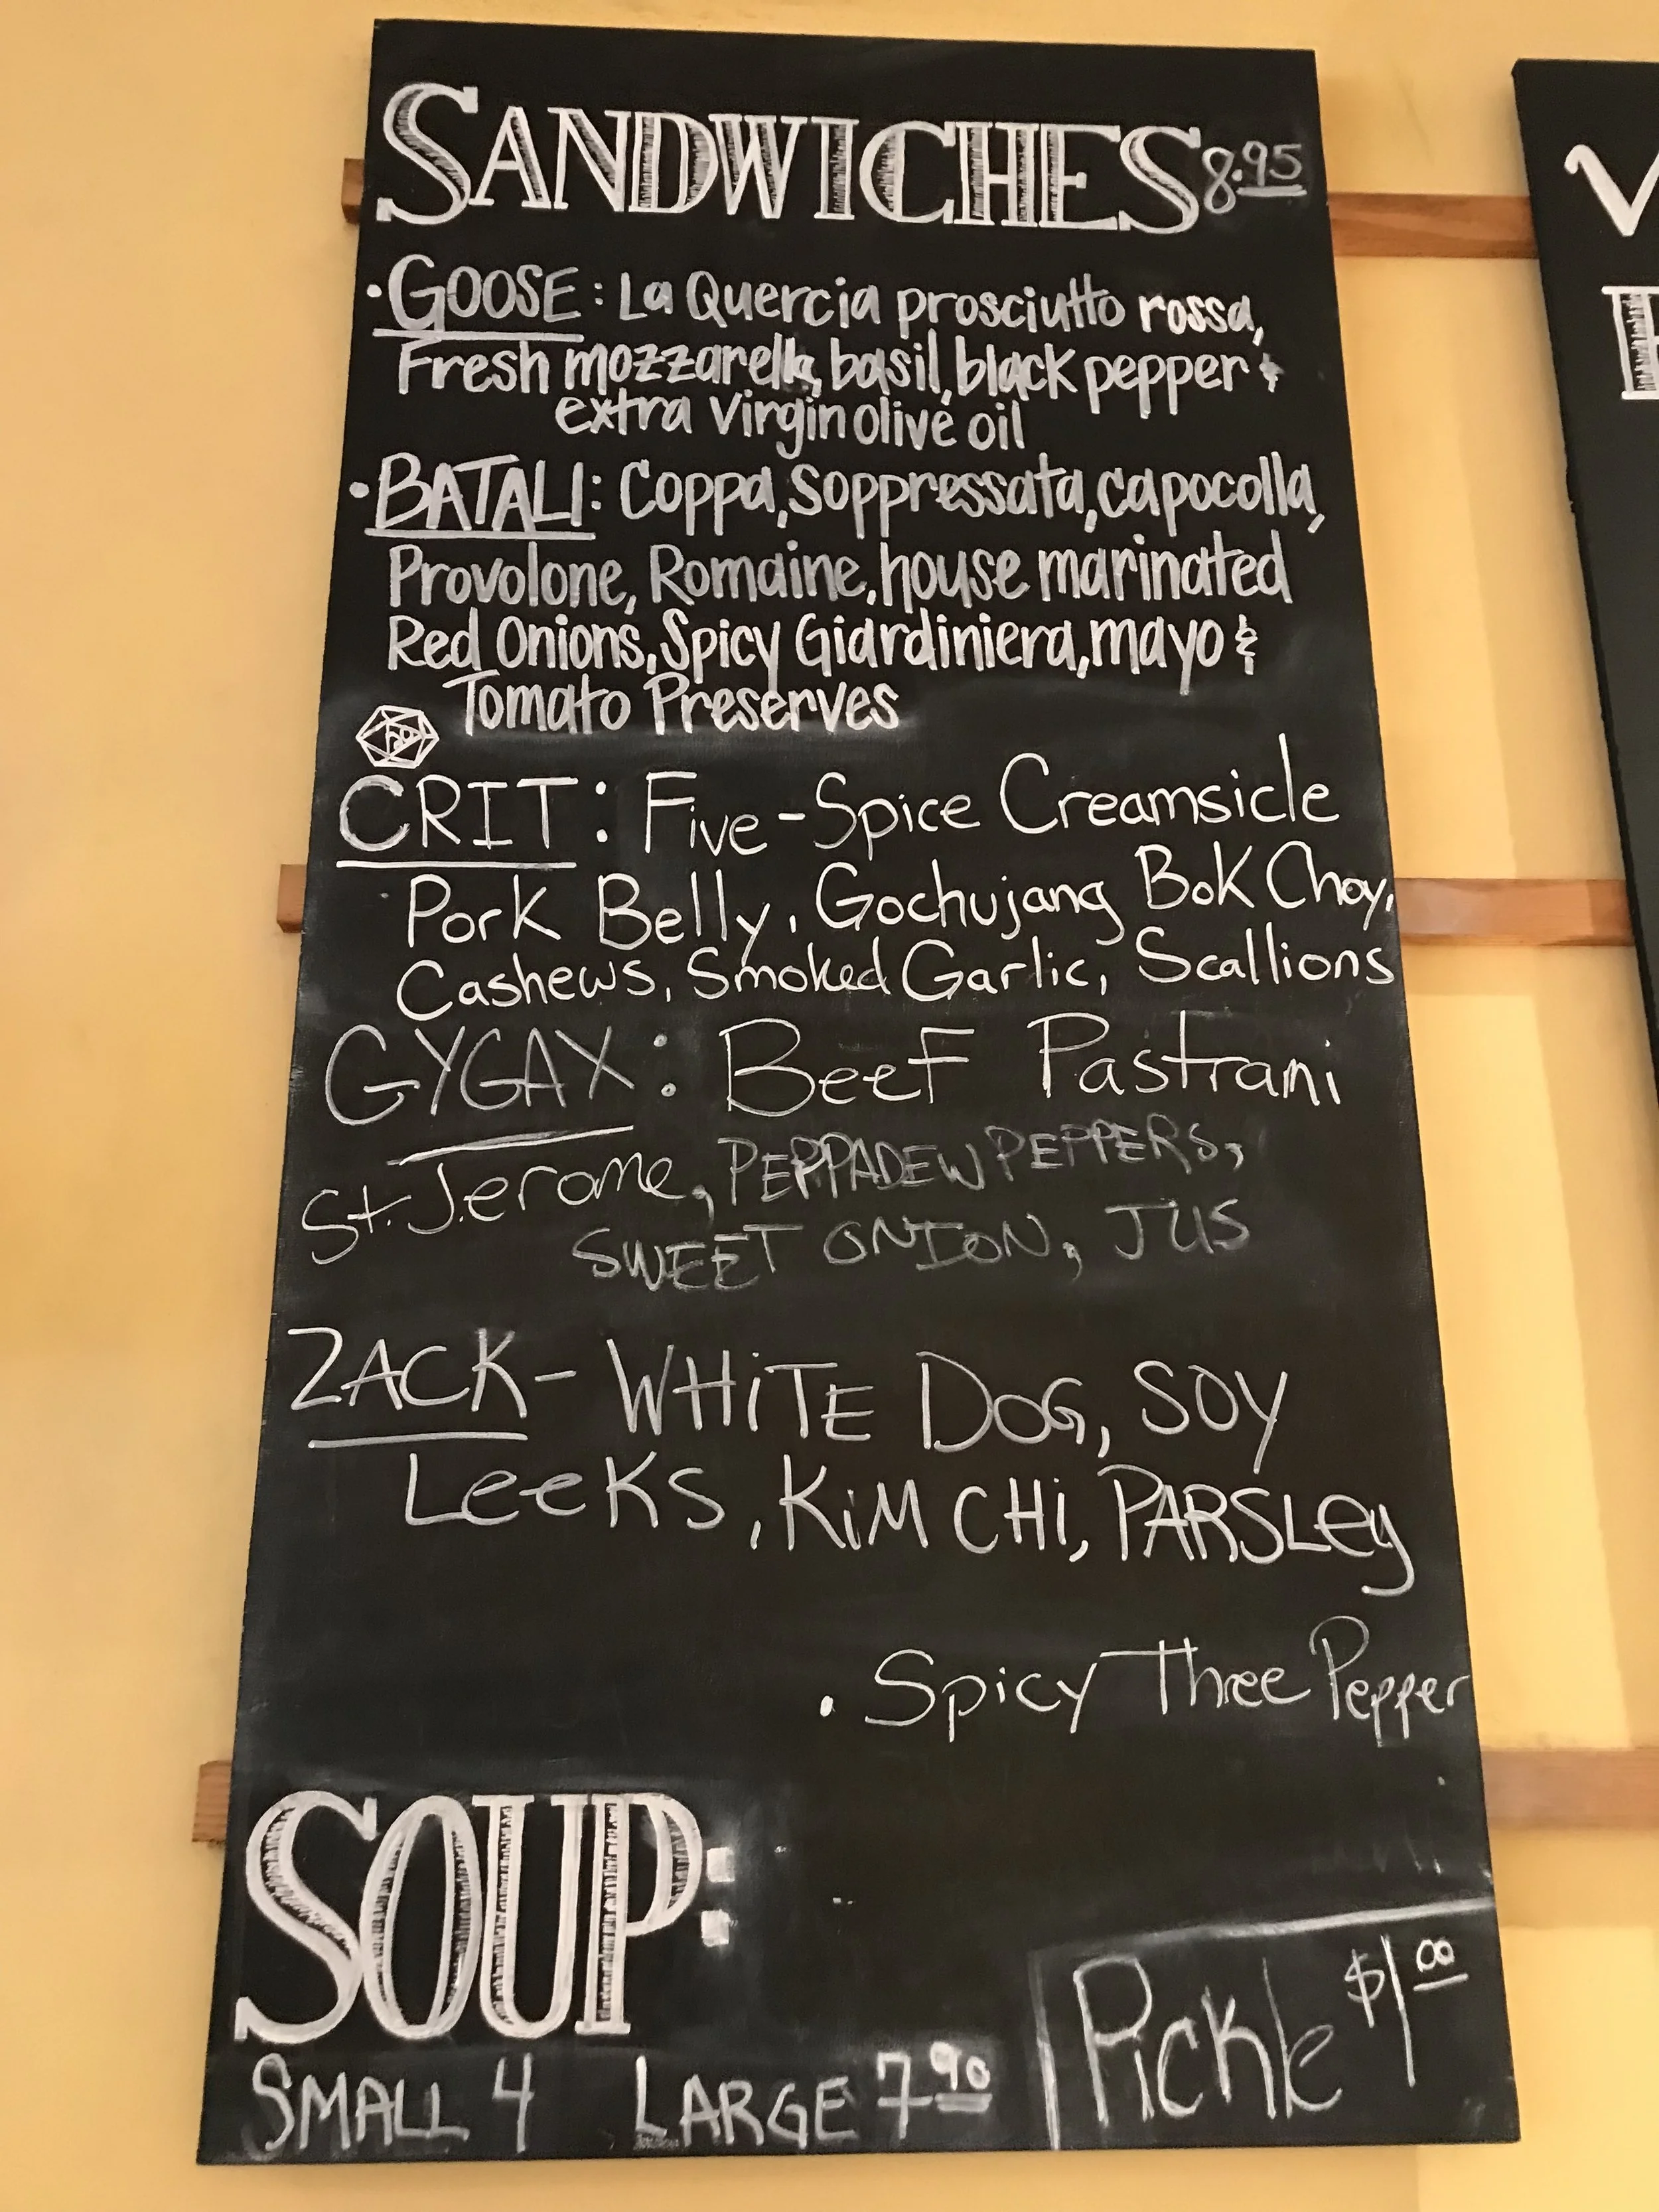 SANDWICHES 8.95
• GOOSE: La Quercia prosciutto rossa,
Fresh mozzarella, basil, black pepper &
extra virgin olive oil
• BATALI: Coppa, Soppressata, capocolla,
Provolone, Romaine, house marinated
Red Onions, Spicy Giardiniera, mayo &
Tomato Preserves
20
CRIT: Five-Spice Creamsicle
Pork Belly, Gochujang Bok Choy,
Cashews, Smoked Garlic, Scallions
GYGAX: Beef Pastrami
St. Jerome, PEPPADEW PEPPERS,
SWEET ONION, JUS
ZACK - WHiTE DOG, SOY
LeeKS, KiMCHi, PARSLey
• Spicy Three Pepper
SOUP:
SMALL 4 LARGE 7.90
Pickle $1.00